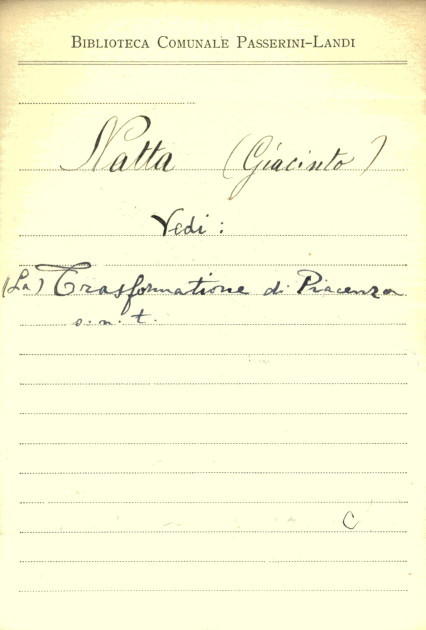 BIBLIOTECA COMUNALE PASSERINI-LANDI
Natta (Giacinto)
Vedi:
(La) Trasformatione di Piacenza
s. n. t.
C